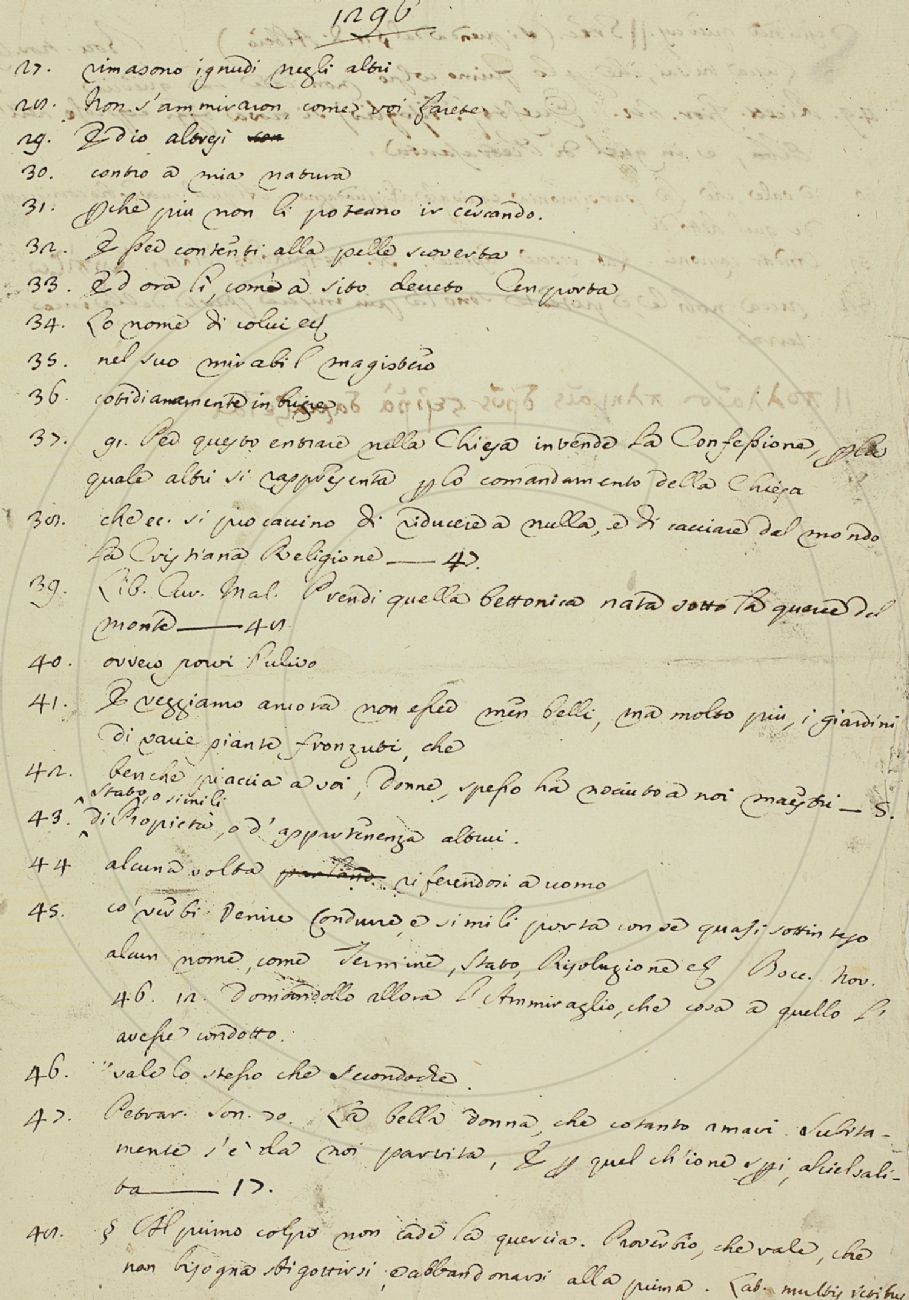 1296
27. rimasono ignudi negli altri
28. Non s'ammiraron come voi farete
29. E dio altresi son
30. contro a mia natura
31. pche piu non li poteano ir cercando.
32. E fieo contenti alla pelle scoverta
33. Ed ora lì, com'a sito decreto Cen porta
34. Lo nome di colui ec
35. nel suo mirabil magistero
36. cotidianamente in brige
37. gr. Per questo entrare nella Chiesa intende la Confessione, p la
quale altri si rappresenta p lo comandamento della Chiesa
38. che ec. si procaccino di riducere a nulla, e di cacciare del mondo
la Cristiana Religione — 47.
39. Lib. Cur. Mal. Prendi quella bettonica nata sotto la querce del
monte — 48
40. ovvero provi l'ulivo
41. E veggiamo ancora non esser men belli, ma molto più, i giardini
di varie piante fronzuti, che
42. benche piaccia a voi, donne, spesso ha nociuto a noi maestri — 5.
stato, o simili
43. di Propietà, o d'appartenenza altrui.
44 alcuna volta parland. riferendosi a uomo
45. co' verbi Venire Condurre, e simili porta con se quasi sottinteso
alcun nome, come Termine, Stato, Risoluzione ec Bocc. Nov.
46. 12. Domandollo allora l'Ammiraglio, che cosa a quello l'
avesse condotto.
46. vale lo stesso che Secondoche.
47. Petrar. Son. 70. La bella donna, che cotanto amavi Subita-
mente s'è da noi partita, E p quel ch'io ne speri, al ciel sali-
ta — 17.
48. § Al primo colpo non cade la quercia. Proverbio, che vale, che
non bisogna sbigottirsi, e abbandonarsi alla prima. Lat. multis ictibus